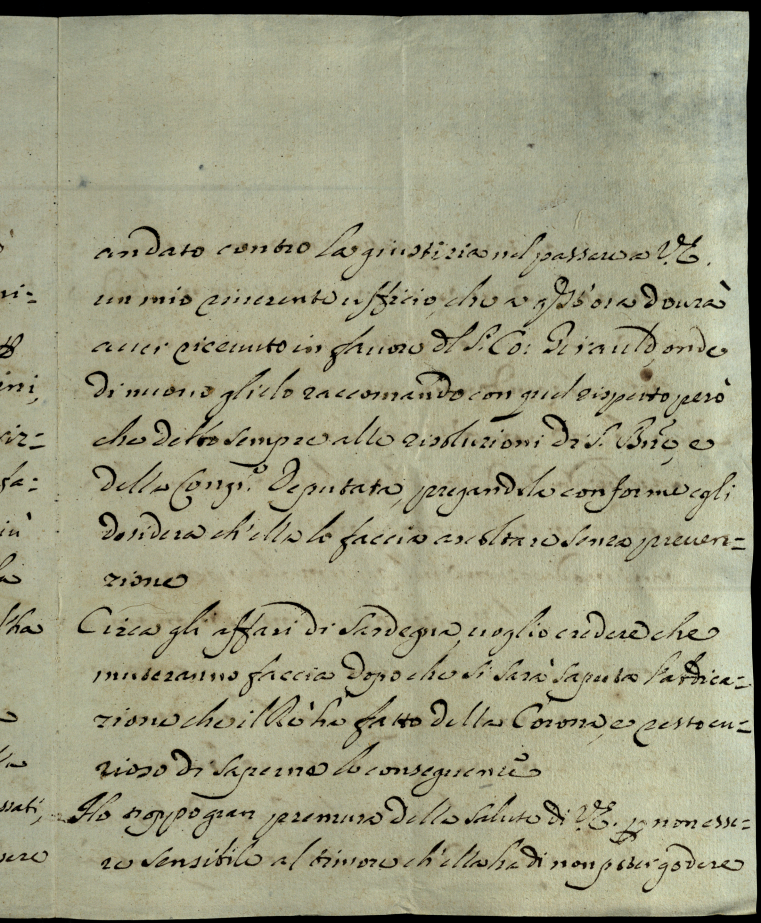 andato contro la giustizia nel passare a V.E.
un mio riverente ufficio, che a quest'ora dovrà
aver ricevuto in favore del S.r Co: Giraud, onde
di nuovo glielo raccomando con quel rispetto però
che debbo sempre alle risoluzioni di S. Bne, e
della Congr.e Deputata, pregandola conforme egli
desidera ch'ella lo faccia ascoltare senza preven=
zione
Circa gli affari di Sardegna, voglio credere che
muteranno faccia dopo che si sarà saputa l'abdica=
zione che il Rè hà fatto della Corona, e resto cu=
rioso di saperne le conseguenze
Ho troppo gran premura della salute di V.E. per non esse=
re sensibile al timore ch'ella hà di non poter godere
ni=
ini,
ciz=
fa=
iù
la
l'ha
e
la
ssati,
vere